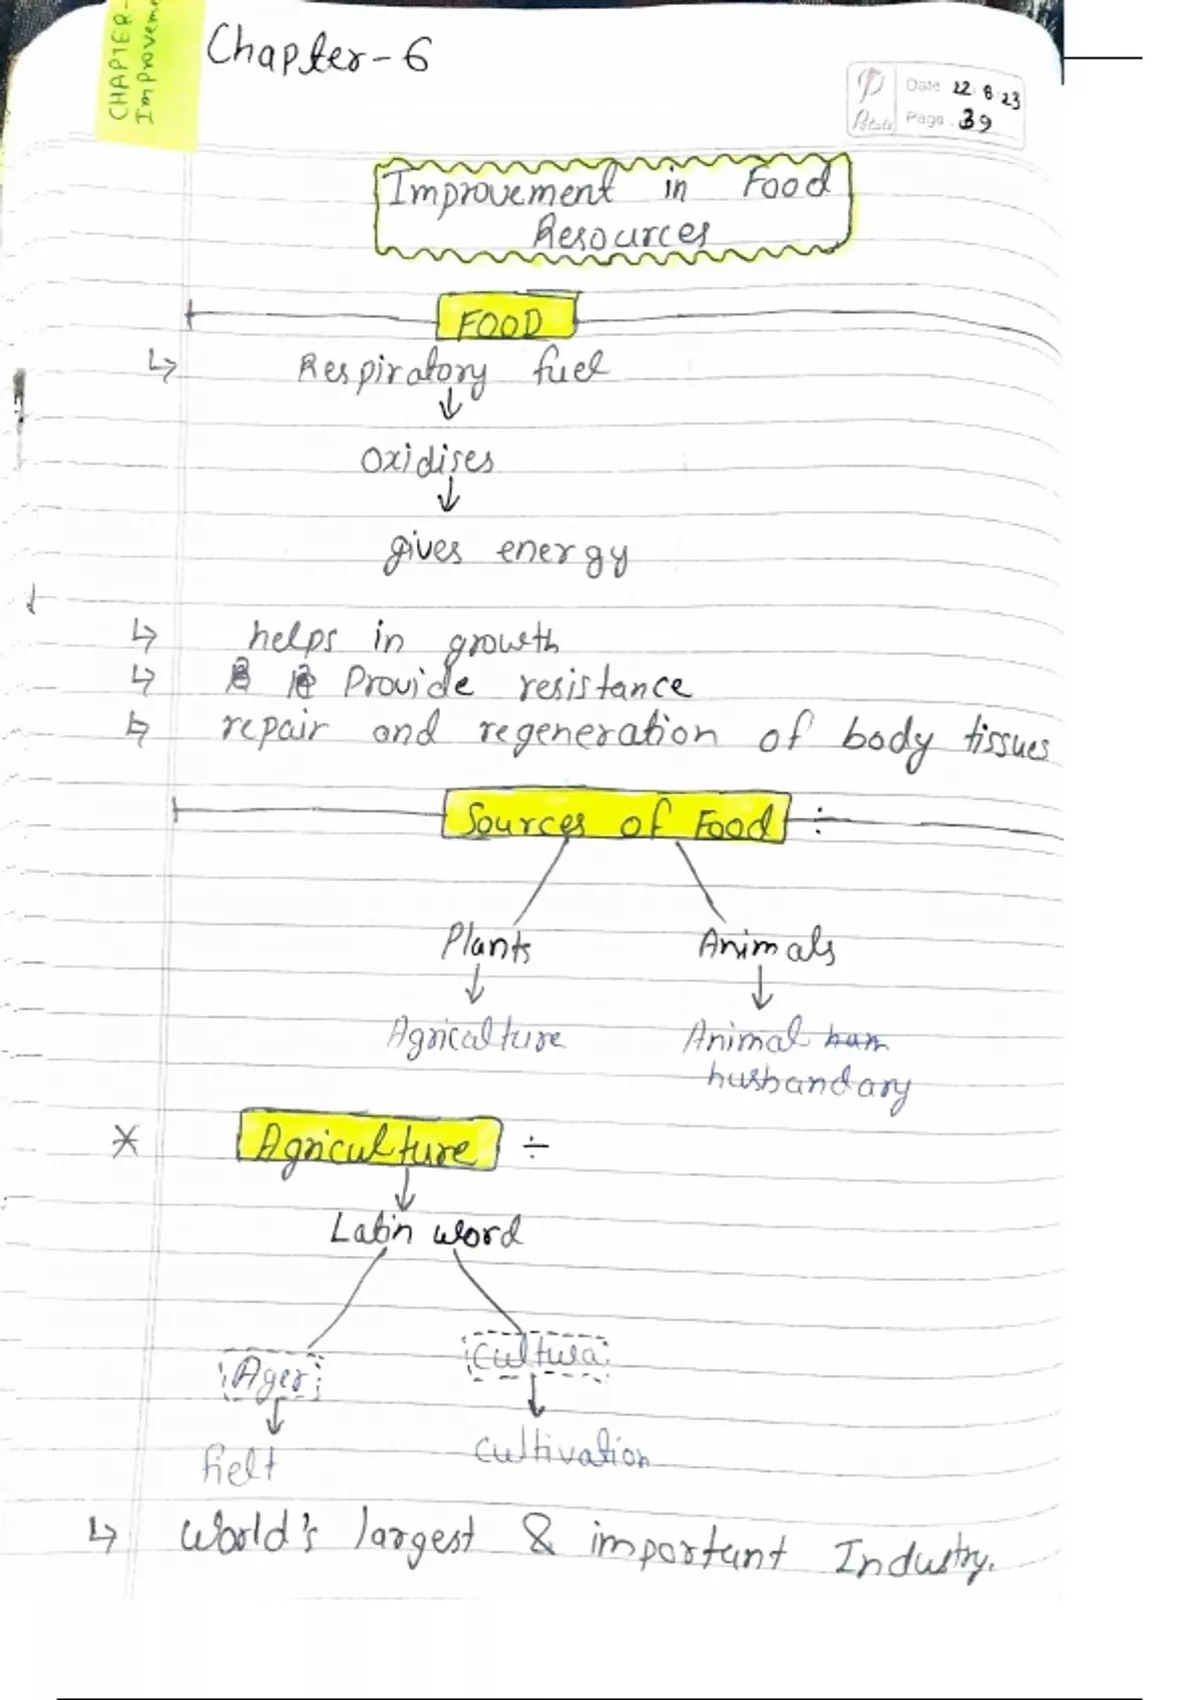 CHAPTER-
Improvem
Chapter-6
Date 22.8.23
Page. 39
Improvement in Food
Resources
FOOD
↳ Respiratory fuel
↓
Oxidises
↓
gives energy
↳ helps in growth
↳ Provide resistance
↳ repair and regeneration of body tissues
Sources of Food ÷
Plants Animals
↓ ↓
Agriculture Animal hum
husbandary
* Agriculture ÷
↓
Latin word
Ager Cultura
↓ ↓
fielt cultivation
↳ World's largest & important Industry.